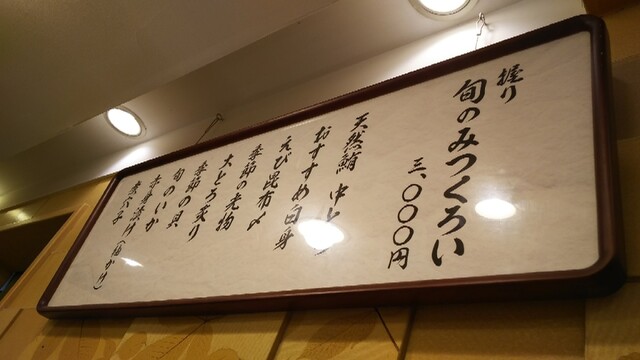 握り
旬のみつくろい
三、〇〇〇円
天然鮪 中と
おすすめ白身
えび昆布〆
季節の光物
大とろ炙り
季節の貝
旬のいか
赤身漬け
煮穴子